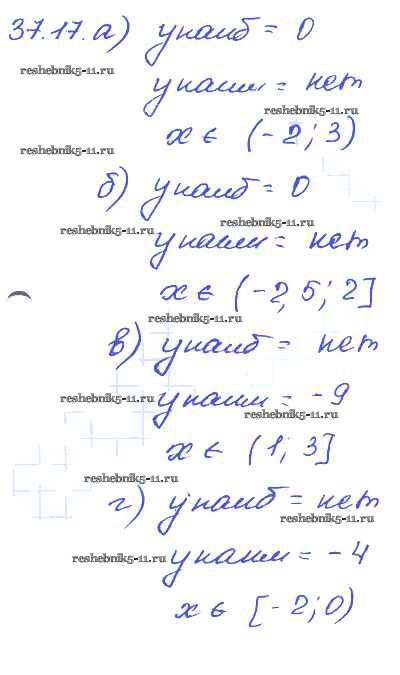 37.17. а) yнаиб = 0
reshebnik5-11.ru
yнаим = нет
reshebnik5-11.ru
x ∈ (-2; 3)
reshebnik5-11.ru
б) yнаиб = 0
reshebnik5-11.ru
reshebnik5-11.ru
yнаим = нет
x ∈ (-2,5; 2]
reshebnik5-11.ru
в) yнаиб = нет
reshebnik5-11.ru
yнаим = -9
reshebnik5-11.ru
x ∈ (1; 3]
reshebnik5-11.ru
г) yнаиб = нет
reshebnik5-11.ru
yнаим = -4
reshebnik5-11.ru
x ∈ [-2; 0)